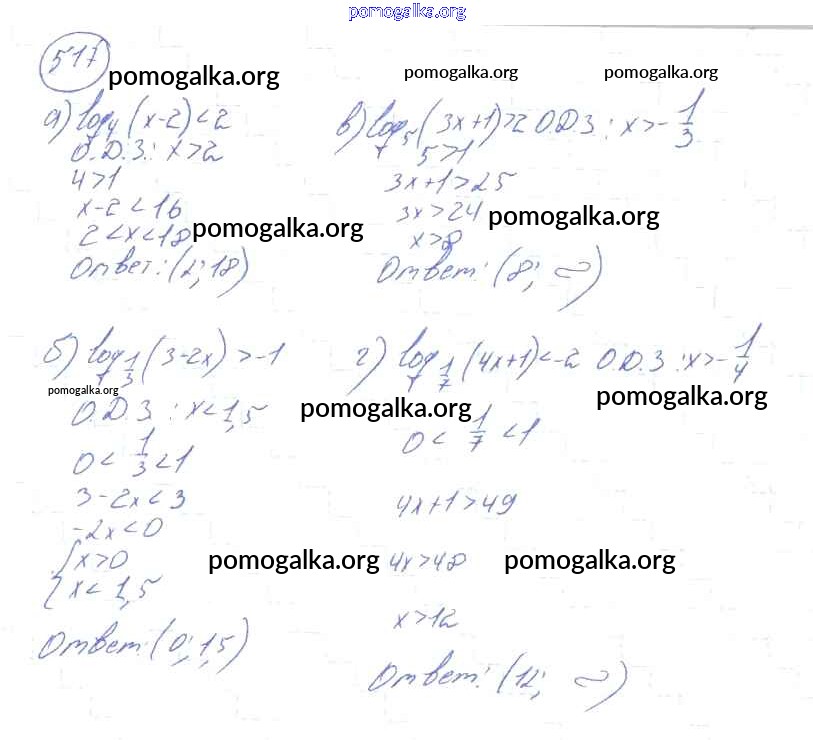 pomogalka.org
517
pomogalka.org pomogalka.org pomogalka.org
а) log₄(x-2)<2
О.Д.З.: x>2
4>1
x-2<16
2<x<18 pomogalka.org
Ответ: (2; 18)
в) log₅(3x+1)>2 О.Д.З: x>-1/3
5>1
3x+1>25
3x>24 pomogalka.org
x>8
Ответ: (8; ∞)
б) log₁/₃(3-2x)>-1
pomogalka.org
О.Д.З: x<1,5 pomogalka.org
0<1/3<1
3-2x<3
-2x<0
{x>0 pomogalka.org
{x<1,5
Ответ (0; 1,5)
г) log₁/₇(4x+1)<-2 О.Д.З: x>-1/4
pomogalka.org
0<1/7<1
4x+1>49
4x>48 pomogalka.org
x>12
Ответ: (12; ∞)